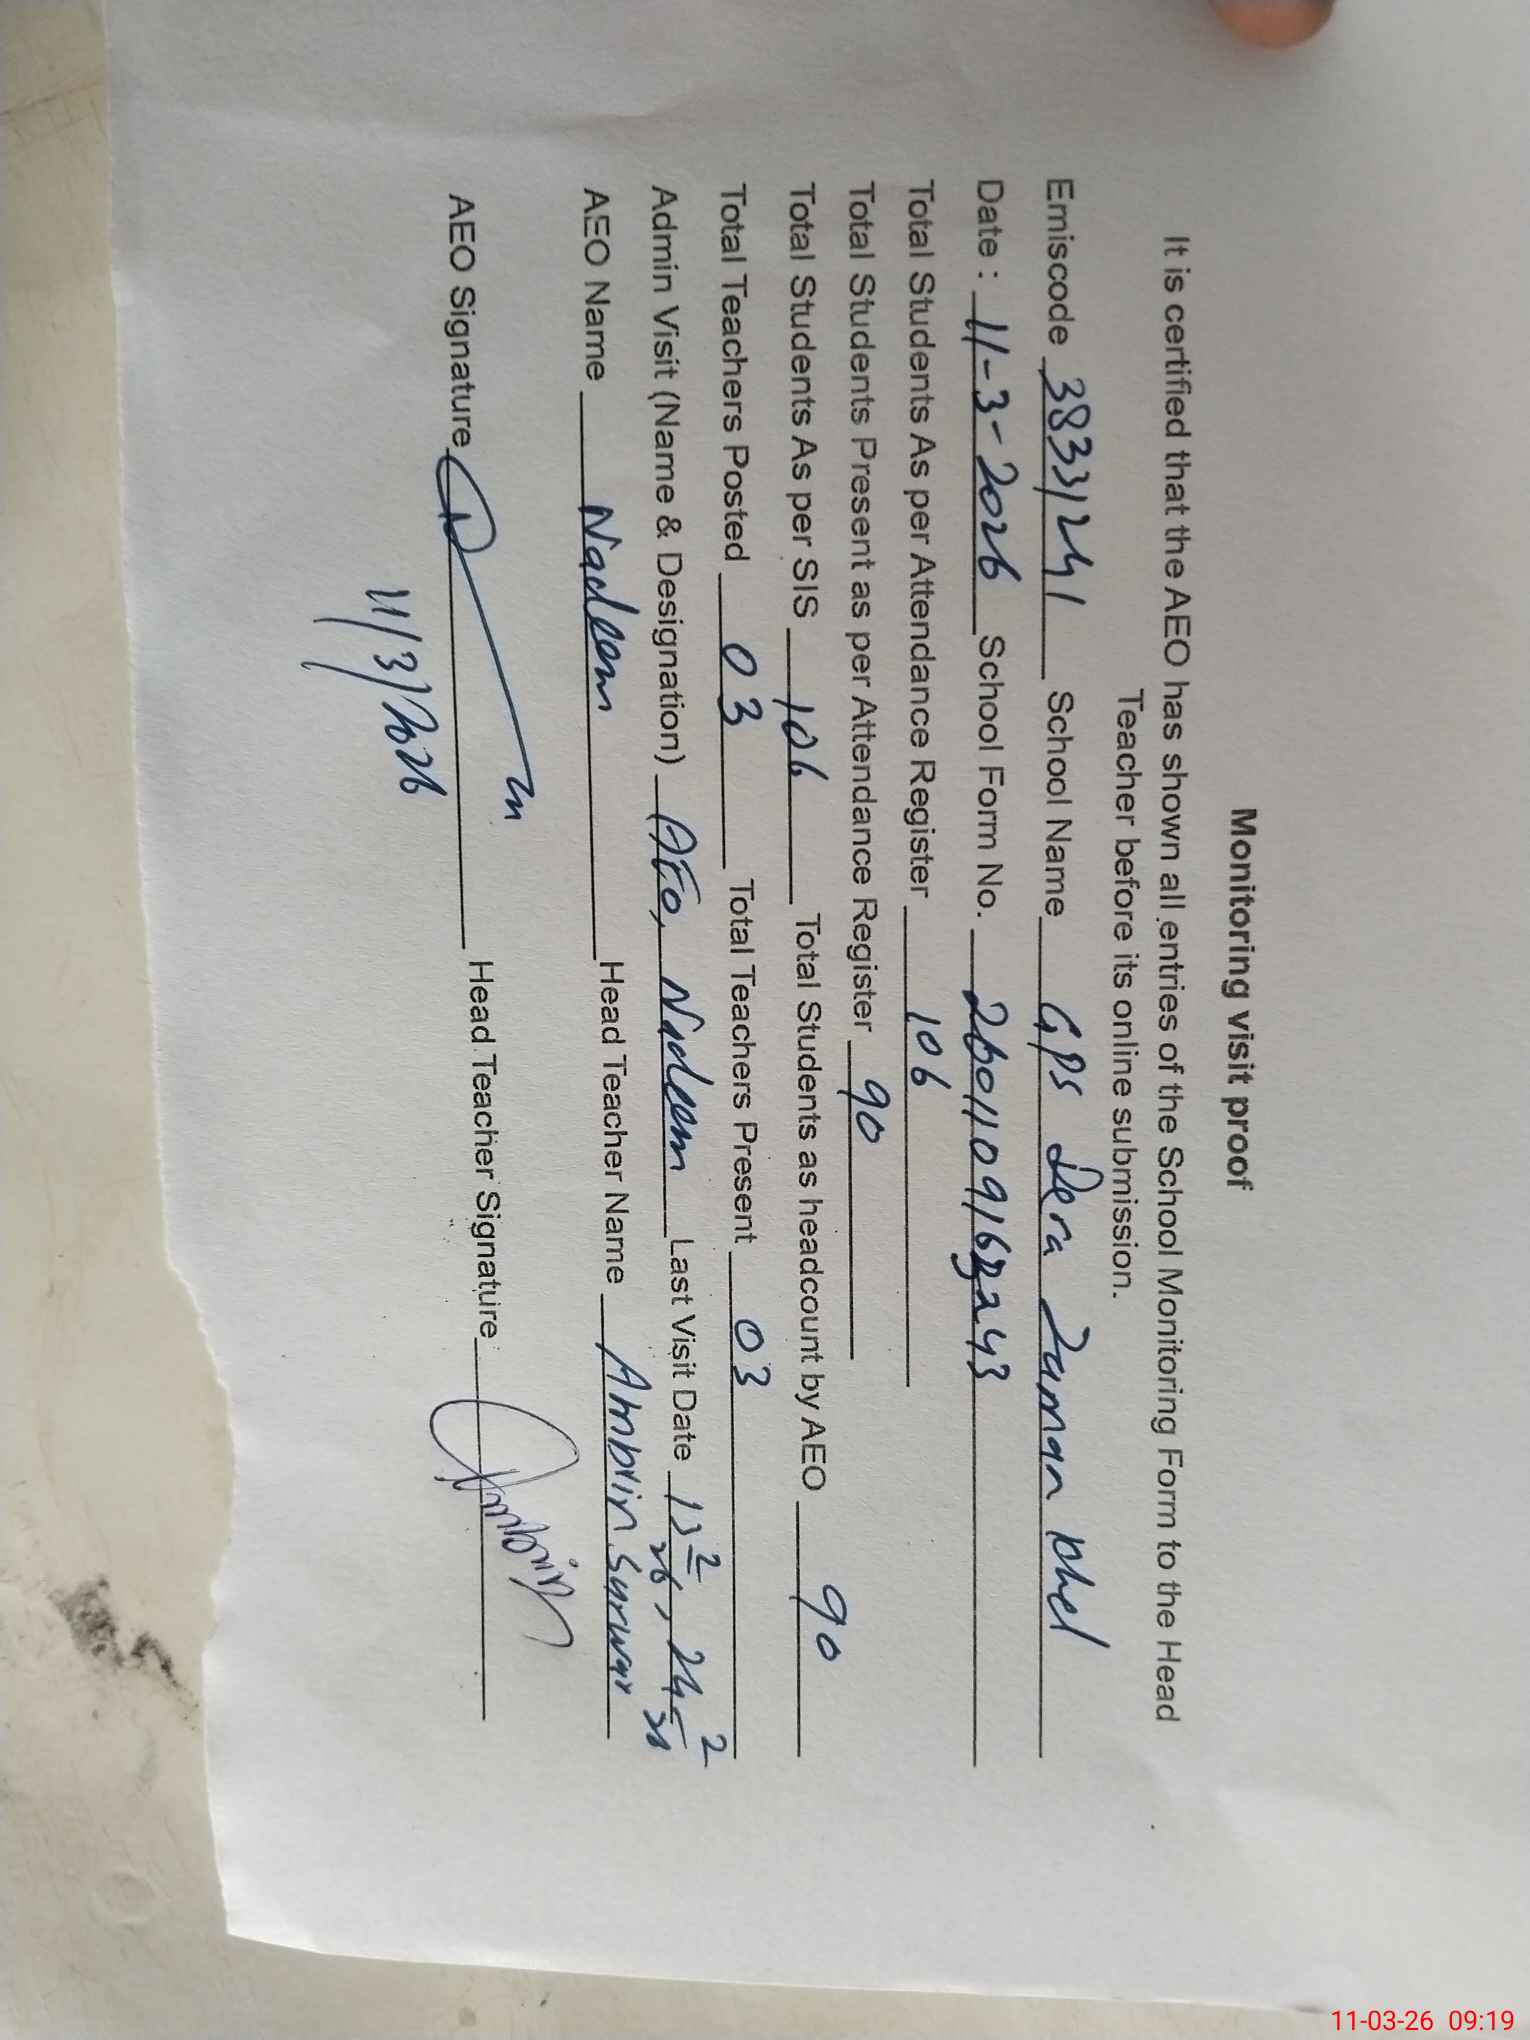 Monitoring visit proof
It is certified that the AEO has shown all entries of the School Monitoring Form to the Head
Teacher before its online submission.
Emiscode 38331241 School Name GPS Dera Zaman
Date : 11-3-2026 School Form No.
Total Students As per Attendance Register 106
Total Students Present as per Attendance Register 90
Total Students As per SIS 106 Total Students as headcount by AEO 90
Total Teachers Posted 03 Total Teachers Present 03
Admin Visit (Name & Designation) AEO, Nadeem Last Visit Date
AEO Name Nadeem Head Teacher Name Ambrin Sarwar
AEO Signature Head Teacher Signature Ambrin
11/3/2026
11-03-26 09:19